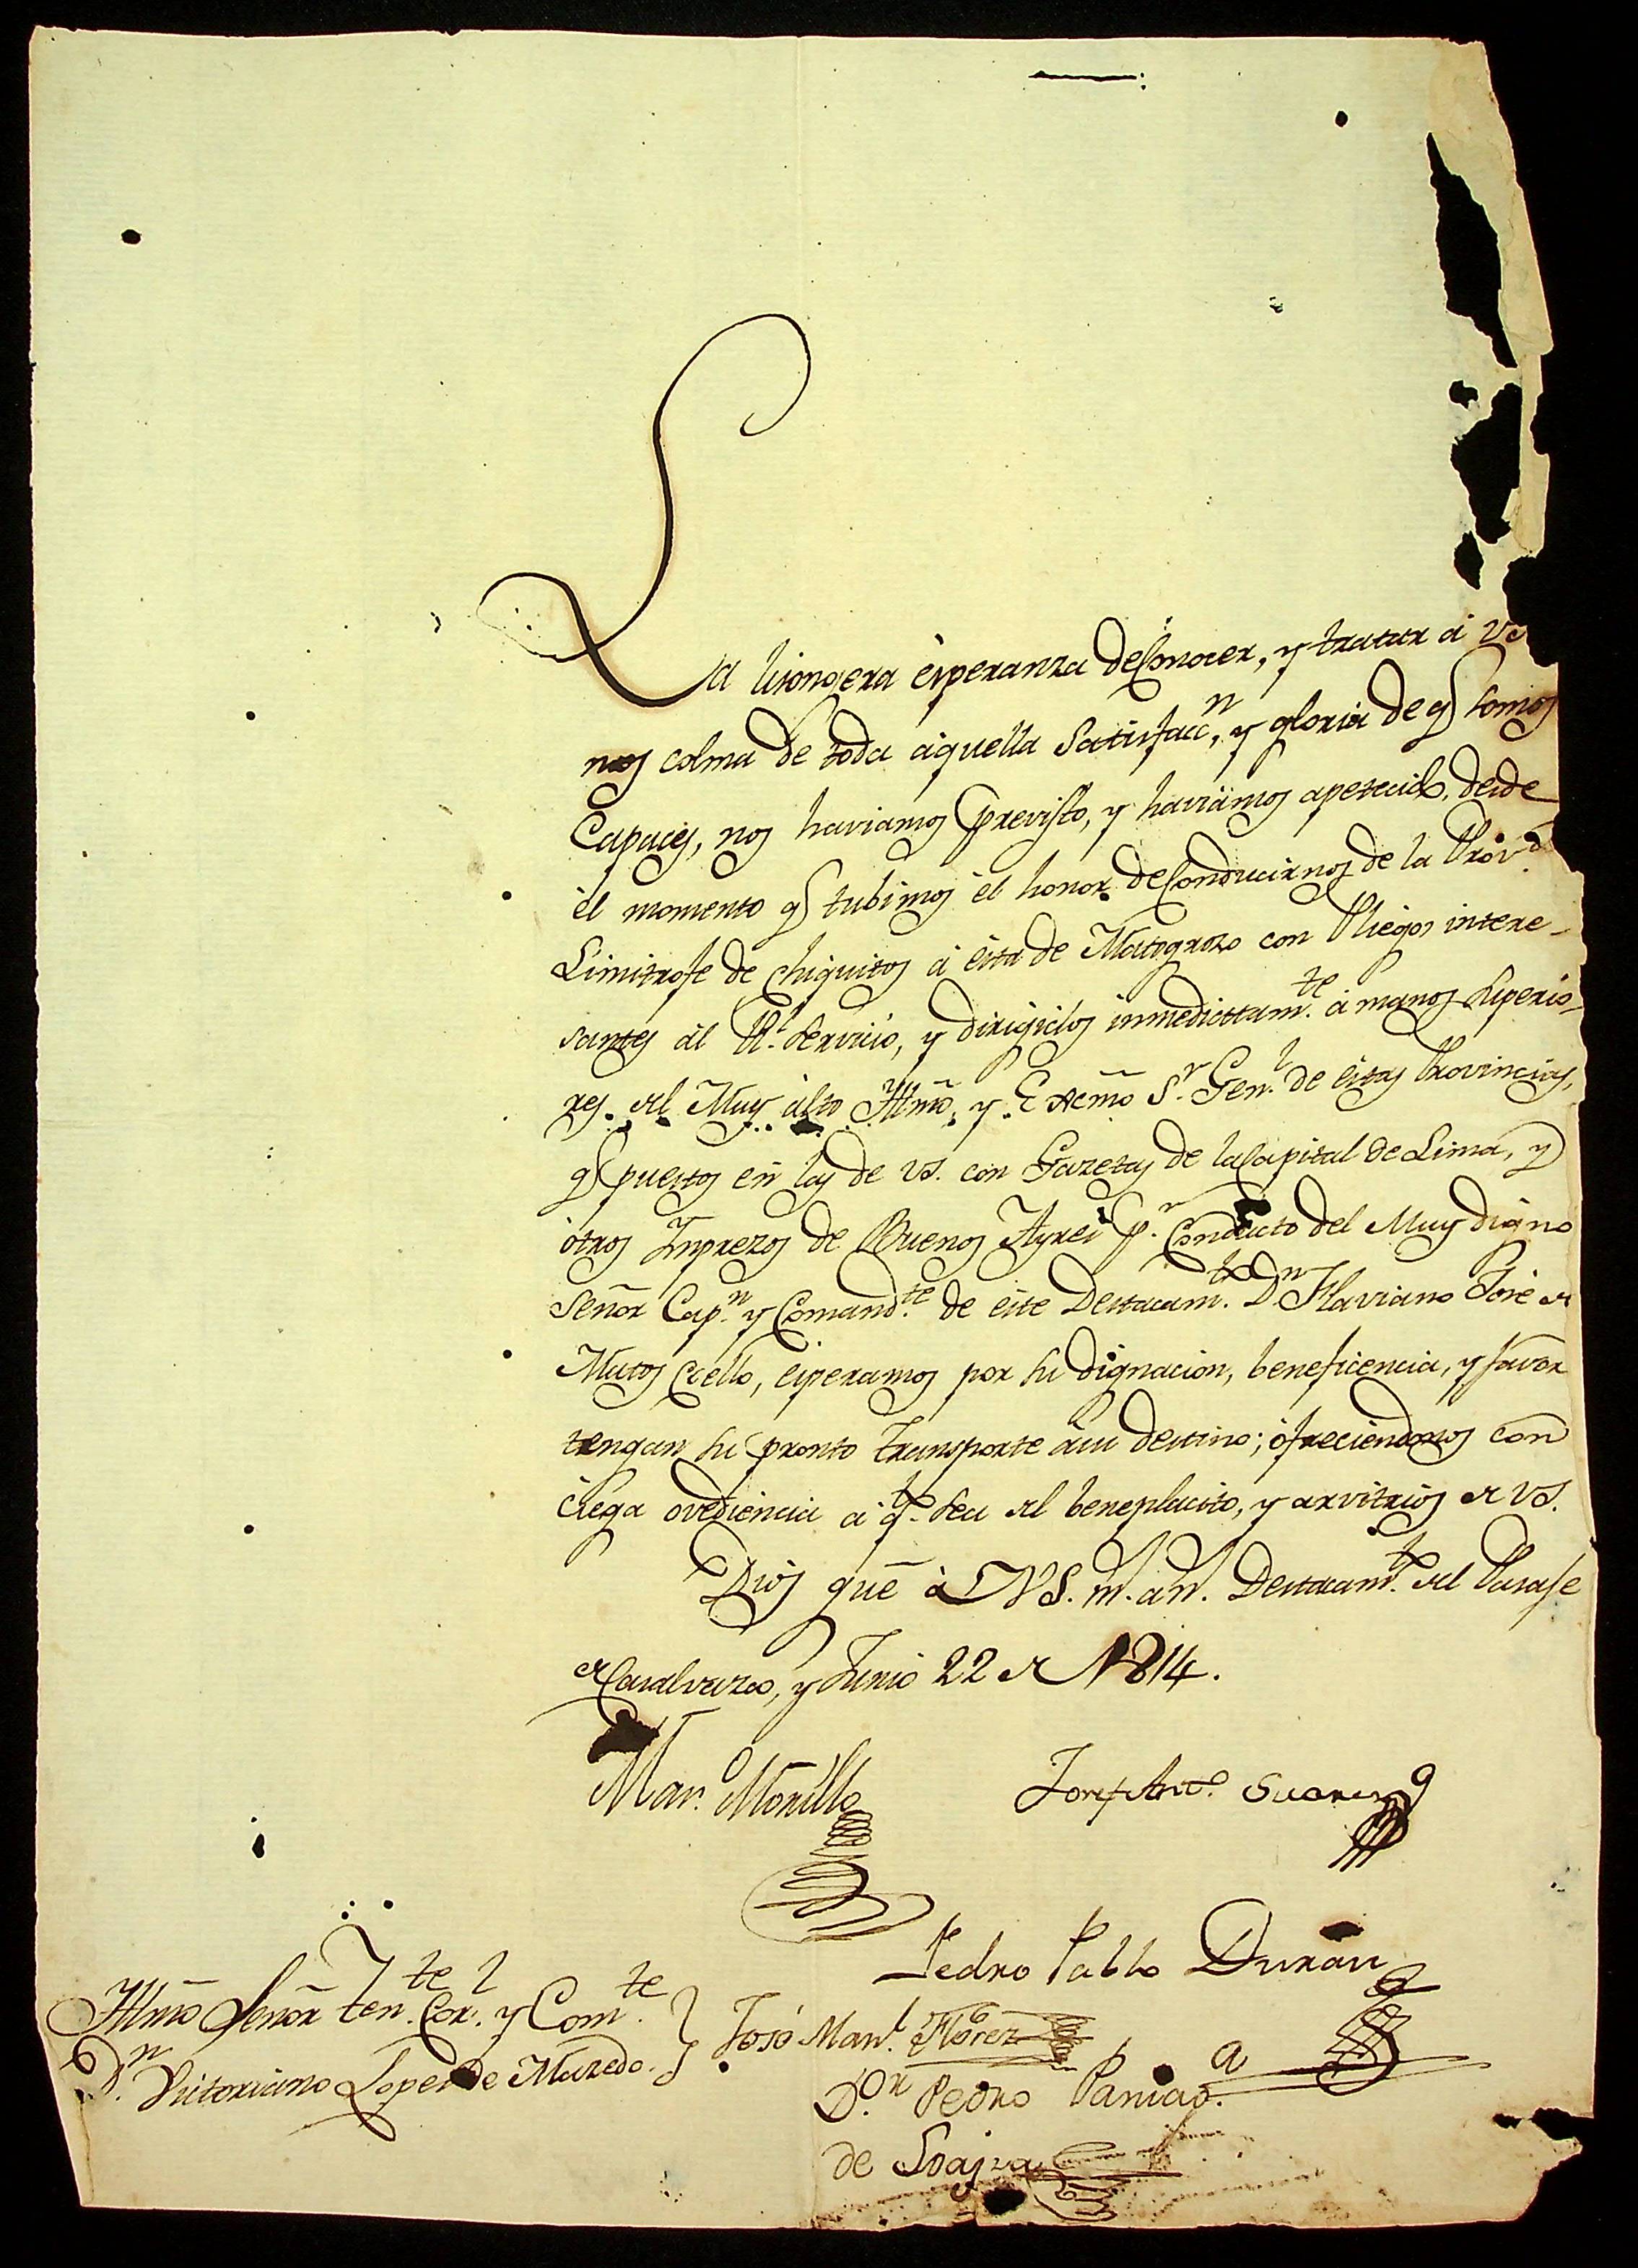 La lisongera esperanza de Conocer, y tratar á VS
nos colma de toda aquella Satisfacc.n, y gloria de q.e somos
Capaces, nos haviamos previsto, y haviamos apetecido, desde
el momento q.e tubimos el honor de Conducirnos de la Prov.a
Limitrofe de Chiquitos á esta de Matogrozo con Pliegos intere-
santes al R.l Servicio, y dirigidos inmediatam.te á manos superio-
res del Muy alto Illmõ, y Excmõ S.r Gen.l de estas Provincias,
q.e puestos en las de VS. con Gazetas de la Capital de Lima, y
otros Imprezos de Buenos Ayres p.r Conducto del Muy digno
Señor Cap.n y Comand.te de este Destacam.to D.n Flaviano José de
Matos Coello, esperamos por su dignacion, beneficencia, y favor
tengan su pronto transporte á su destino; ofreciendonos con
ciega ovediencia á q.to sea del beneplacito, y arvitrios de VS.
Dios gue à VS. m. an. Destacam.to del Parage
de Casalvazco, y Junio 22 de 1814.
Mar.o Monillo Josef Ant.o Suarez
Pedro Pablo Durán
Illmõ Señor Ten.te Cor.l y Com.te José Man.l Florez
D.n Victoriano Lopes de Mazedo.
D.or Pedro Paniag.a
de Loayza